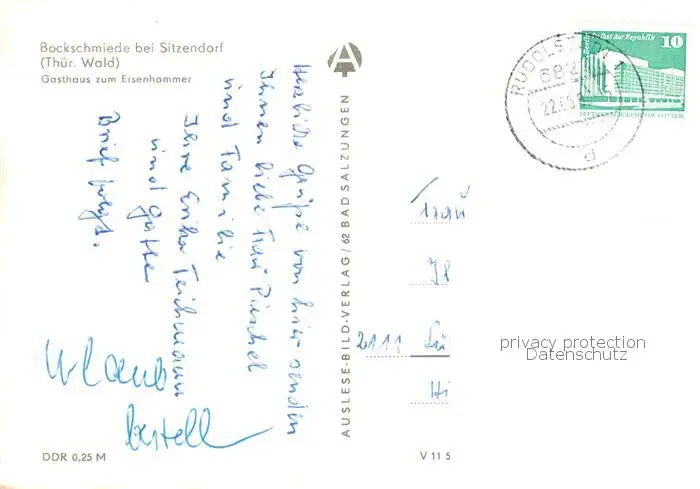 Bockschmiede bei Sitzendorf
(Thür. Wald)
Gasthaus zum Eisenhammer
Herzliche Grüße von hier senden
Ihnen liebe Frau Püschel
und Familie
Ihre Erika Teichmann
und Gatte
Brief folgt.
Urlaub
bestell
DDR 0,25 M
AUSLESE-BILD-VERLAG / 62 BAD SALZUNGEN
V 11 5
RUDOLSTADT
682
22.
d
10
Berlin, Palast der Republik
DEUTSCHE DEMOKRATISCHE REPUBLIK
Frau
2111
privacy protection
Datenschutz